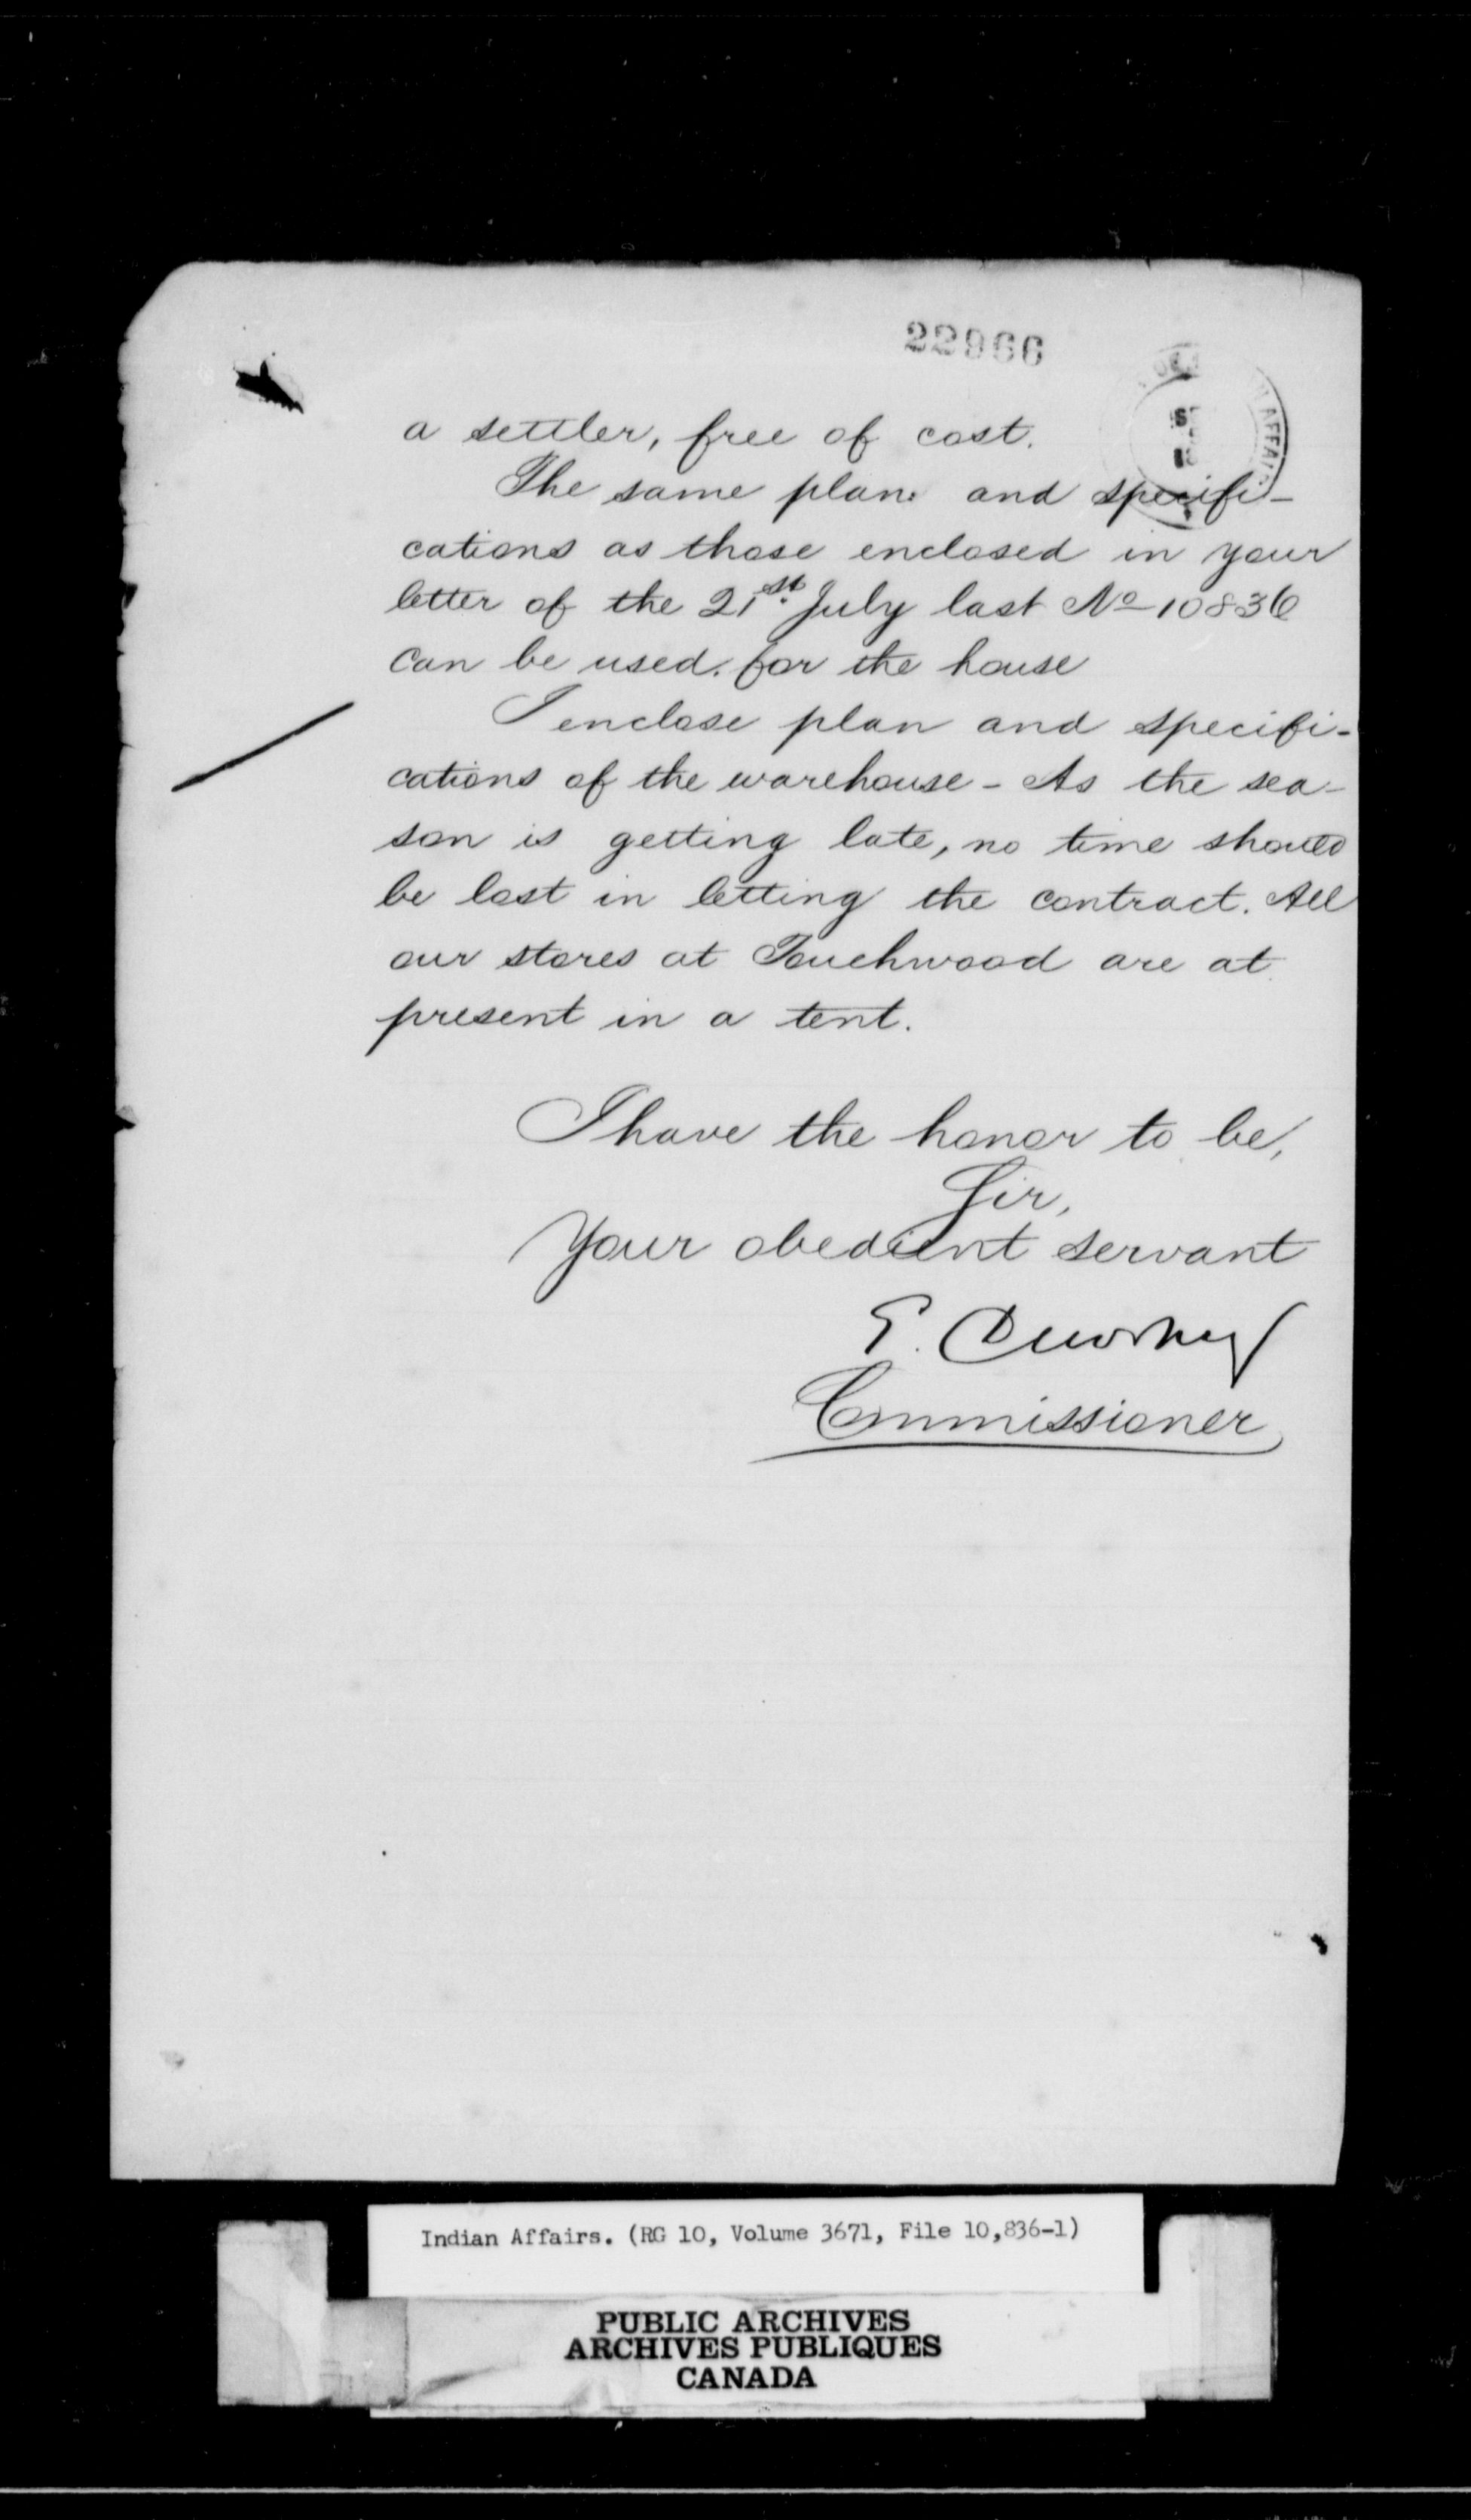 22966
AFFAI
a settler, free of cost.
The same plan and specifi-
cations as those enclosed in your
letter of the 21st July last No 10836
can be used. for the house
I enclose plan and specifi-
cations of the warehouse - As the sea-
son is getting late, no time should
be lost in letting the contract. All
our stores at Touchwood are at
present in a tent.
I have the honor to be,
Sir,
Your obedient servant
E. Dewdney
Commissioner
Indian Affairs. (RG 10, Volume 3671, File 10,836-1)
PUBLIC ARCHIVES
ARCHIVES PUBLIQUES
CANADA